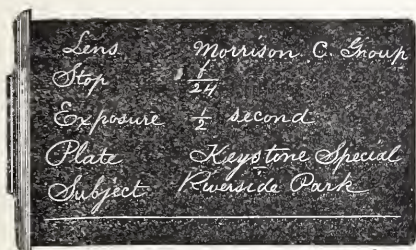 Lens Morrison. C. Group
Stop f/24
Exposure ½ second
Plate Keystone Special
Subject Riverside Park